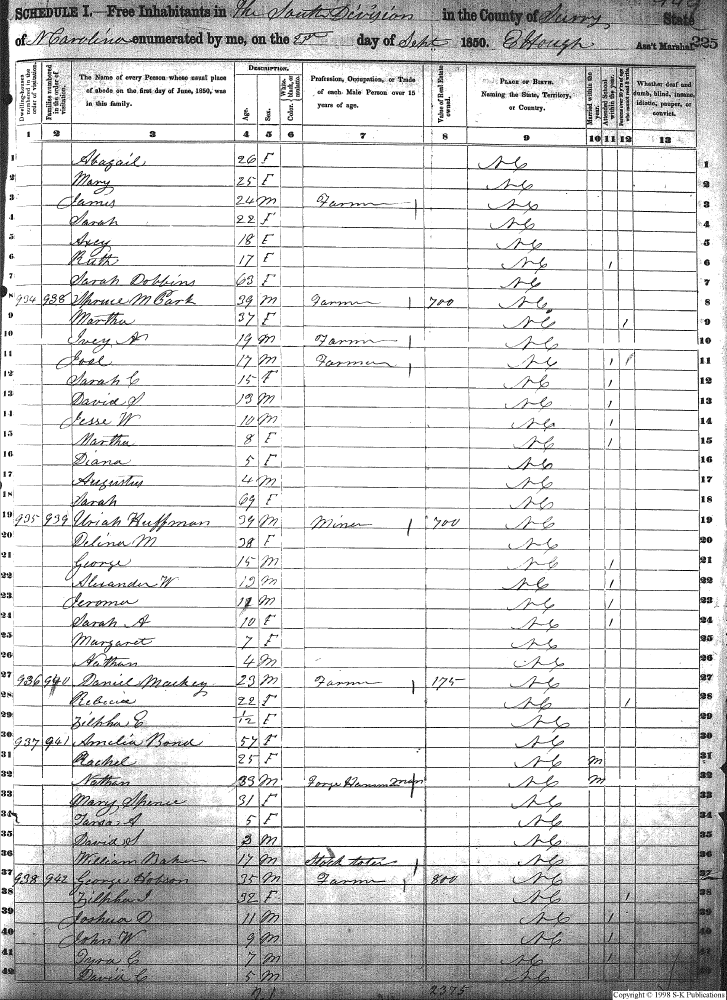 SCHEDULE I.—Free Inhabitants in The South Division in the County of Surry State
of N Carolina enumerated by me, on the day of Sept 1850. E Hough Ass't Marshal. 225
Dwelling-houses numbered in the order of visitation.
Families numbered in the order of visitation.
The Name of every Person whose usual place of abode on the first day of June, 1850, was in this family.
DESCRIPTION.
Age.
Sex.
Color, White, black, or mulatto.
Profession, Occupation, or Trade of each Male Person over 15 years of age.
Value of Real Estate owned.
PLACE OF BIRTH. Naming the State, Territory, or Country.
Married within the year.
Attended School within the year.
Persons over 20 y'rs of age who cannot read & write.
Whether deaf and dumb, blind, insane, idiotic, pauper, or convict.
1 2 3 4 5 6 7 8 9 10 11 12 13
1 Abagail 26 F NC 1
2 Mary 25 F NC 2
3 James 24 M Farmer NC 3
4 Sarah 22 F NC 4
5 18 F NC 5
6 Ruth 17 F NC 1 6
7 Sarah Dobbins 63 F NC 7
8 934 938 Spruce McCark 39 M Farmer 700 NC 8
9 Martha 37 F NC 1 9
10 Ivey A 19 M Farmer NC 10
11 Joel 17 M Farmer NC 1 1 11
12 Sarah C 15 F NC 1 12
13 David S 13 M NC 1 13
14 Jesse W 10 M NC 1 14
15 Martha 8 F NC 1 15
16 Diana 5 F NC 16
17 Augustus 4 M NC 17
18 Sarah 69 F NC 18
19 935 939 Uriah Huffman 39 M Miner 700 NC 19
20 Delina M 38 F NC 20
21 George 15 M NC 1 21
22 Alexander W 13 M NC 1 22
23 Jerome 11 M NC 1 23
24 Sarah A 10 F NC 1 24
25 Margaret 7 F NC 25
26 Nathan 4 M NC 26
27 936 940 Daniel Mackey 23 M Farmer 175 NC 27
28 Rebecca 22 F NC 1 28
29 Zilpha C 1/12 F NC 29
30 937 941 Amelia Bond 57 F NC 30
31 Rachel 25 F NC M 31
32 Nathan 33 M Forge Hammer man NC M 32
33 Mary Spence 31 F NC 33
34 5 F NC 34
35 David S 3 M NC 35
36 William Baker 17 M NC 36
37 938 942 George Hobson 35 M Farmer 800 NC 37
38 Zilpha 32 F NC 1 38
39 Joshua D 11 M NC 1 39
40 John W 9 M NC 1 40
41 7 M NC 1 41
42 David C 5 M NC 42
2375
Copyright © 1998 S-K Publications